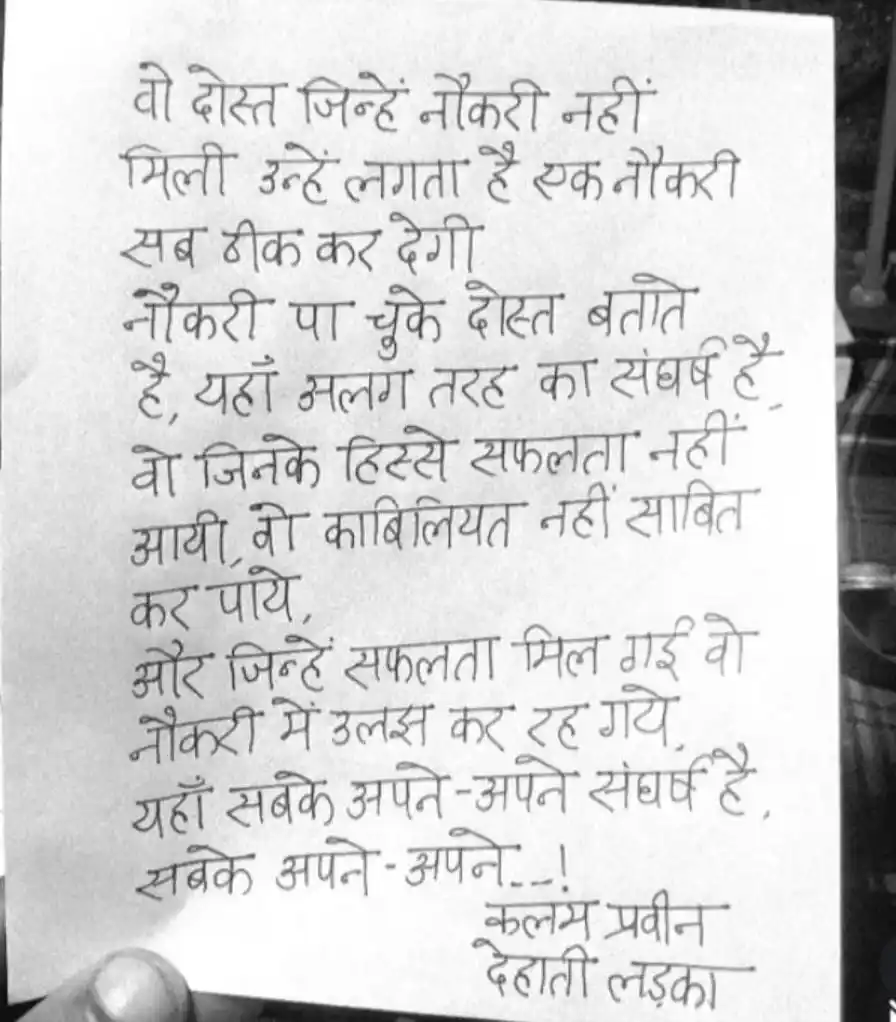 वो दोस्त जिन्हें नौकरी नहीं
मिली उन्हें लगता है एक नौकरी
सब ठीक कर देगी
नौकरी पा चुके दोस्त बताते
है, यहाँ अलग तरह का संघर्ष है,
वो जिनके हिस्से सफलता नहीं
आयी, वो काबिलियत नहीं साबित
कर पाये,
और जिन्हें सफलता मिल गई वो
नौकरी में उलझ कर रह गये,
यहाँ सबके अपने-अपने संघर्ष है,
सबके अपने-अपने...!
कलम प्रवीन
देहाती लड़का